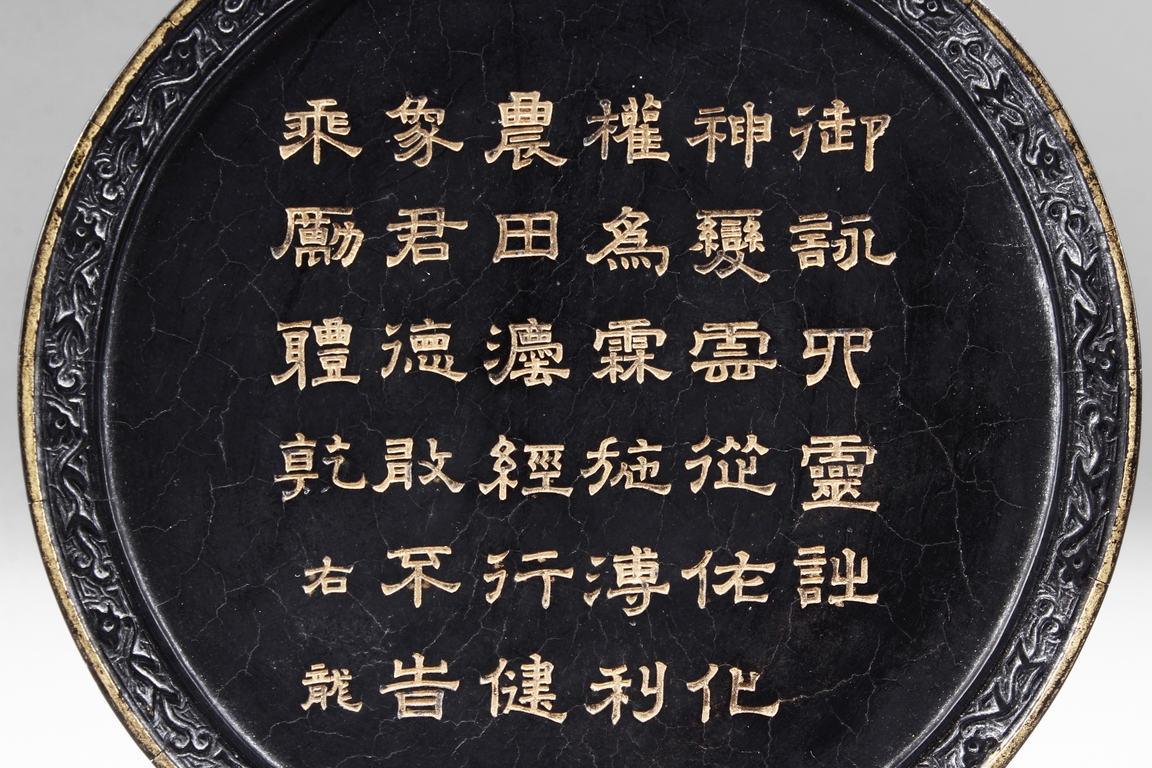 御詠四靈詩
神變雲從佑化
權為霖施溥利
農田灋經行健
象君德敢不旹
乘勵體乾右龍